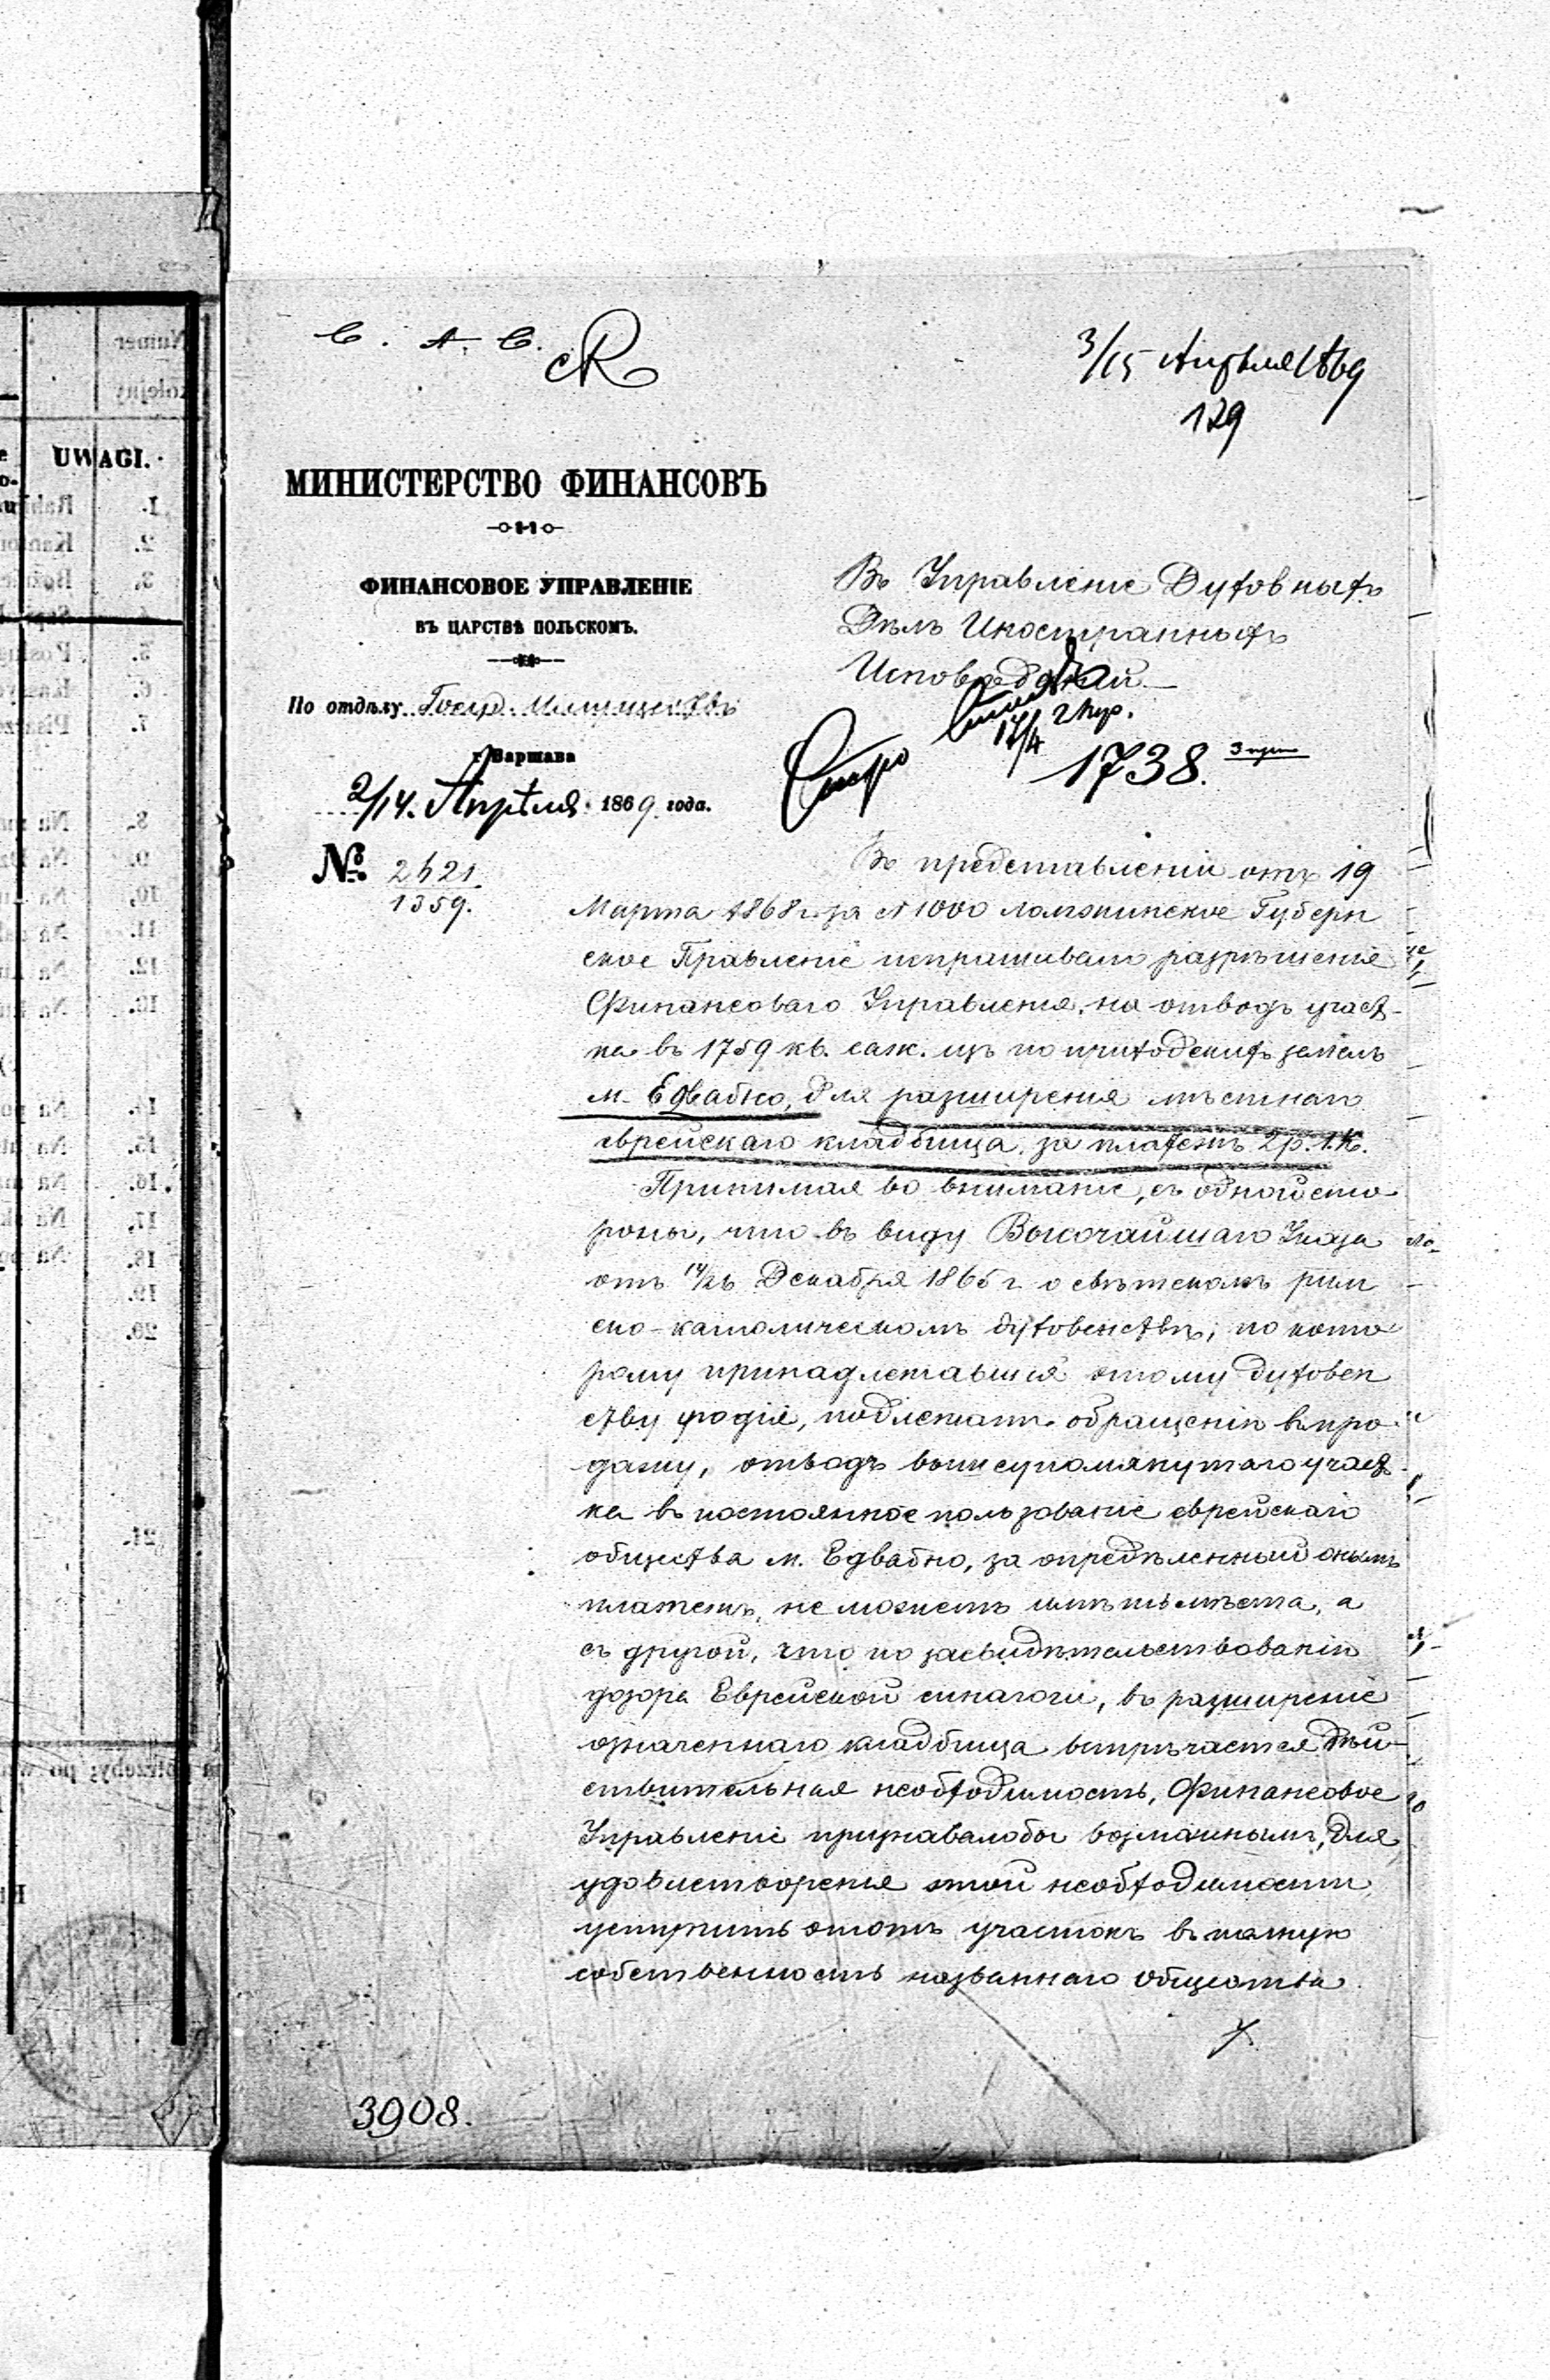 С. А. С.
3/15 Апрѣля 1869
129
МИНИСТЕРСТВО ФИНАНСОВЪ
ФИНАНСОВОЕ УПРАВЛЕНІЕ
ВЪ ЦАРСТВѢ ПОЛЬСКОМЪ.
По отдѣлу Госуд. Имуществъ
г. Варшава
2/14. Апрѣля 1869 года.
№ 2621
1359.
Въ Управленіе Духовныхъ
Дѣлъ Иностранныхъ
Исповѣданій
17/4
1738.
Въ представленіи отъ 19
Марта 1868 г. за № 1000 Ломжинское Губерн
ское Правленіе испрашивало разрѣшенія
Финансоваго Управленія, на отводъ участ-
ка въ 1759 кв. саж. изъ поприходскихъ земель
м. Едвабно, для разширенія мѣстнаго
еврейскаго кладбища, за платежъ 2 р. 1 к.
Принимая во вниманіе, съ одной сто
роны, что въ виду Высочайшаго Указа
отъ 14/26 Декабря 1865 г. о свѣтскомъ рим
ско-католическомъ духовенствѣ, по кото
рому принадлежавшія этому духовен
ству угодія, подлежатъ обращенію въ про
дажу, отводъ вышеупомянутаго участ-
ка въ постоянное пользованіе еврейскаго
общества м. Едвабно, за опредѣленный онымъ
платежъ, не можетъ имѣть мѣста, а
съ другой, что по засвидѣтельствованію
дозора Еврейской синагоги, въ разширеніе
означеннаго кладбища встрѣчается дѣй-
ствительная необходимость, Финансовое
Управленіе признавалобы возможнымъ, для
удовлетворенія этой необходимости
уступить этотъ участокъ въ полную
собственность названнаго общества
3908.
UWAGI.